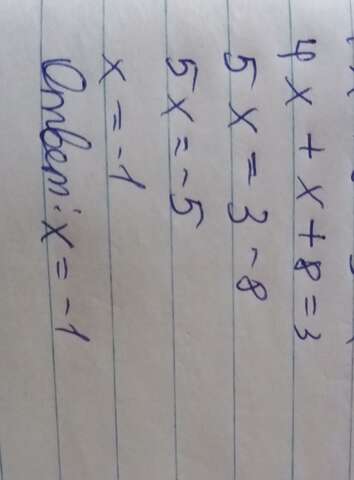 4x + x + 8 = 3
5x = 3 - 8
5x = -5
x = -1
Ответ: x = -1